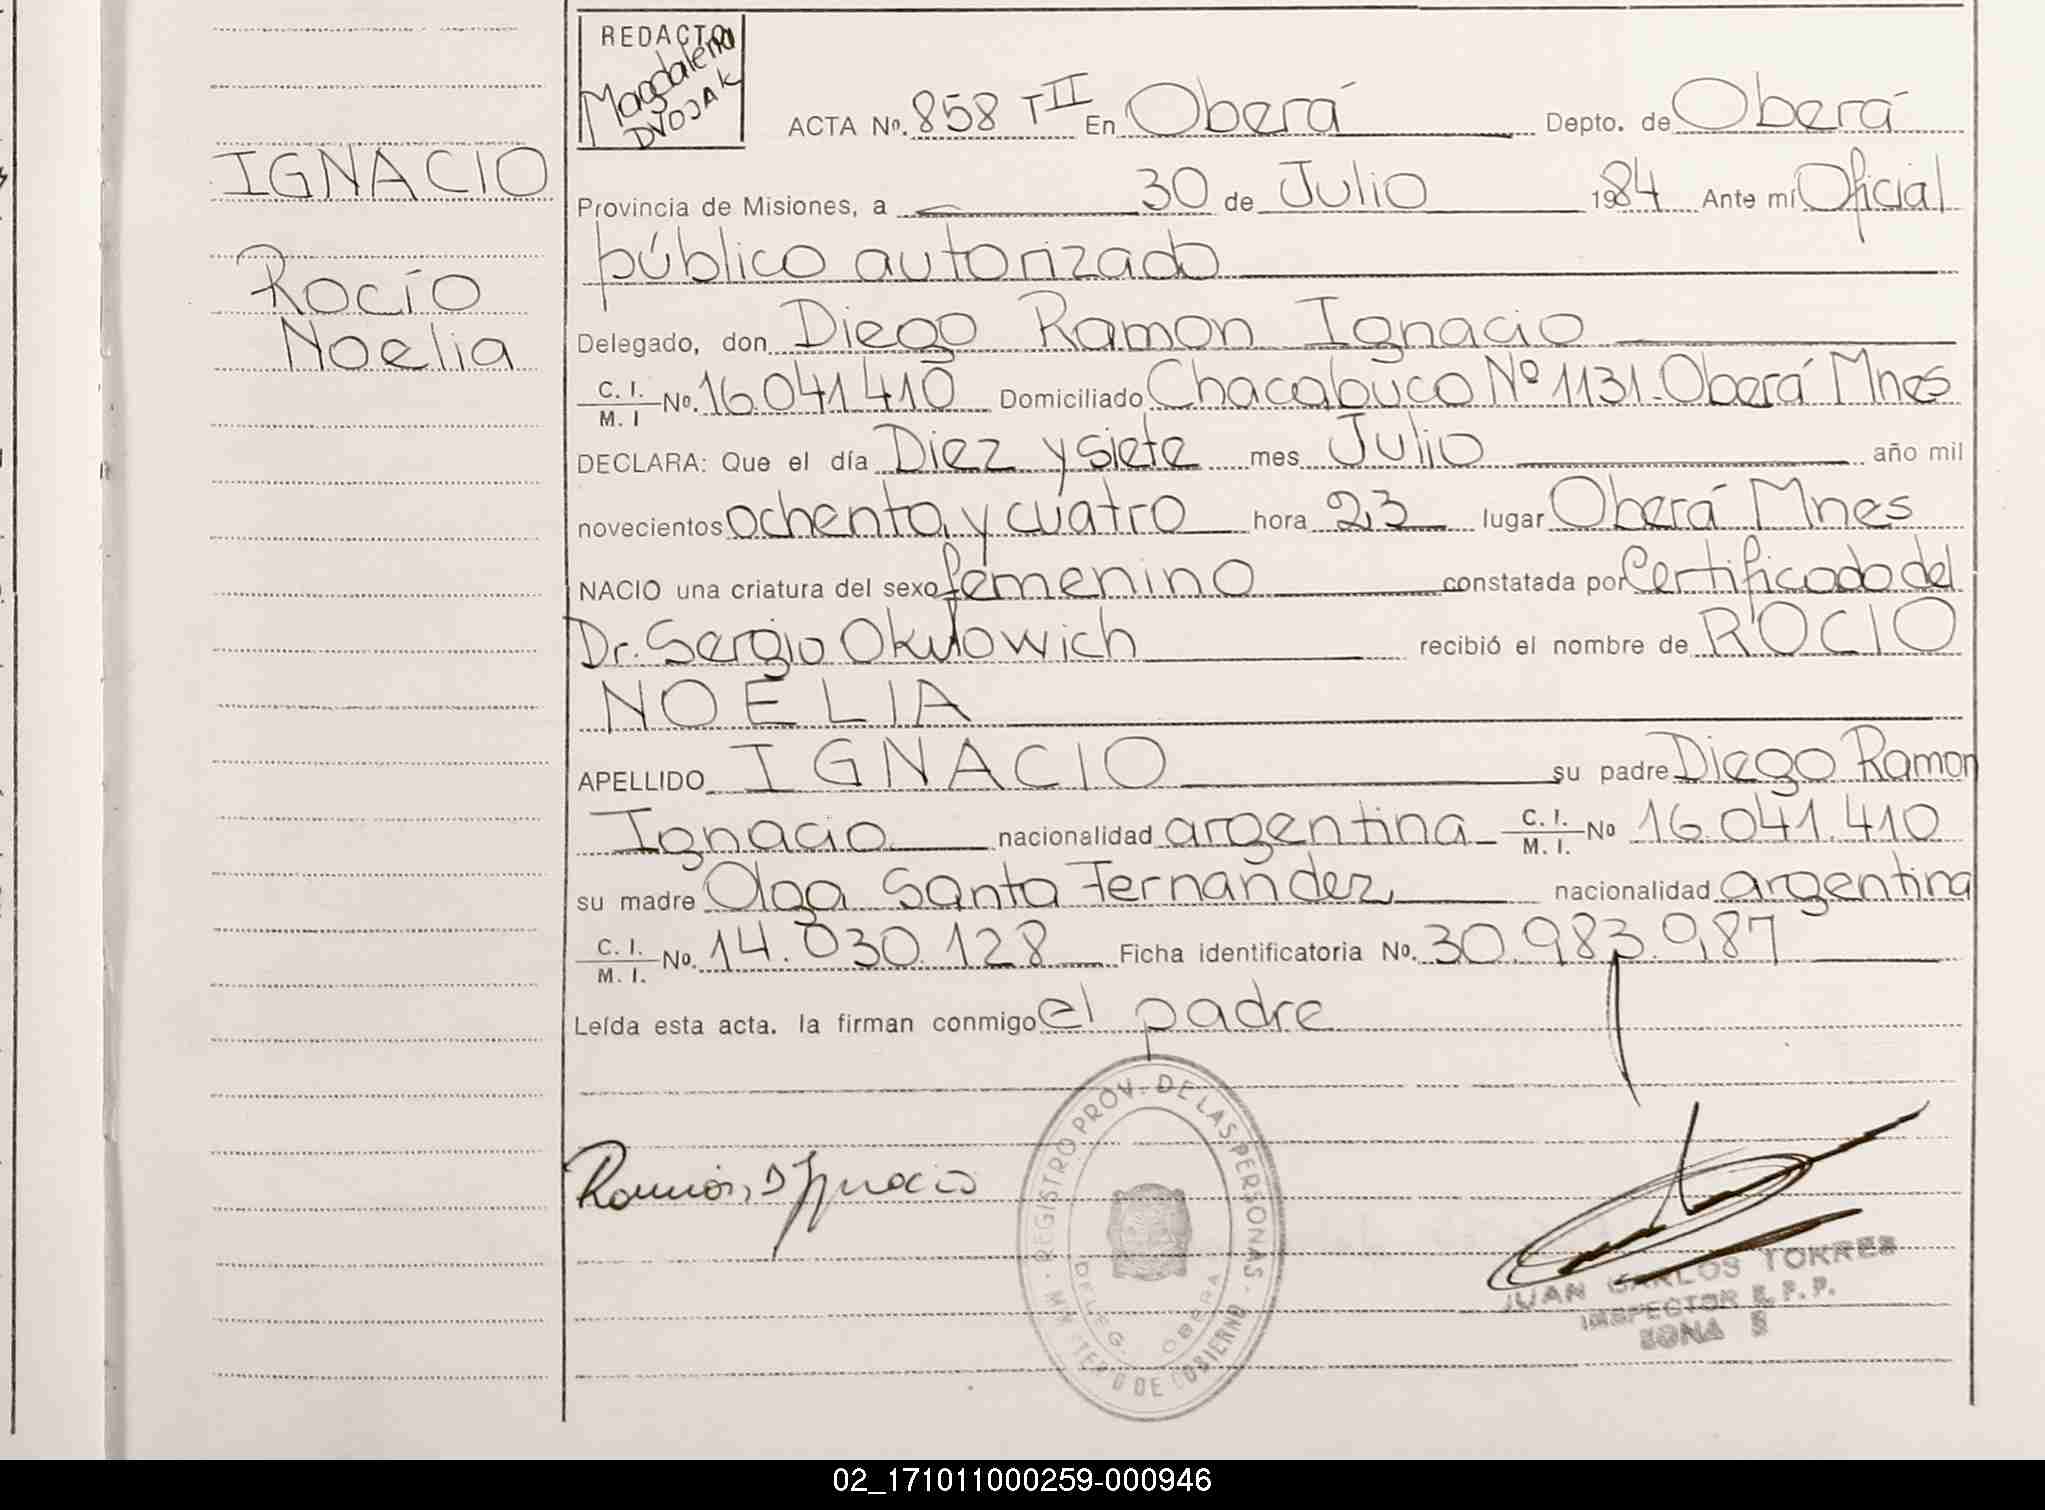 REDACTO
Magdalena
DVOJAK
IGNACIO
Rocío
Noelia
ACTA No. 858 T II En Oberá Depto. de Oberá
Provincia de Misiones, a 30 de Julio 1984 Ante mí Oficial
público autorizado
Delegado, don Diego Ramon Ignacio
C. I. / M. I No. 16.041.410 Domiciliado Chacabuco Nº 1131-Oberá Mnes
DECLARA: Que el día Diez y siete mes Julio año mil
novecientos ochenta y cuatro hora 23 lugar Oberá Mnes
NACIO una criatura del sexo femenino constatada por Certificado del
Dr. Sergio Okulowich recibió el nombre de ROCIO
NOELIA
APELLIDO IGNACIO su padre Diego Ramon
Ignacio nacionalidad argentina C. I. / M. I. No 16.041.410
su madre Olga Santa Fernández nacionalidad argentina
C. I. / M. I. No. 14.030.128 Ficha identificatoria No. 30.983.987
Leída esta acta. la firman conmigo el padre
Ramón, D Ignacio
REGISTRO PROV. DE LAS PERSONAS
DELEG. OBERA
DE GOBIERNO
JUAN CARLOS TORRES
INSPECTOR R. P. P.
ZONA
02_171011000259-000946